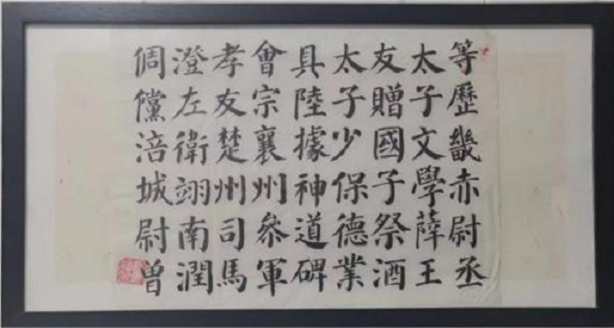 等歷畿赤尉丞
太子文學薛王
友贈國子祭酒
太子少保德業
具陸據神道碑
會宗襄州叅軍
孝友楚州司馬
澄左衛翊南潤
倜儻涪城尉曾